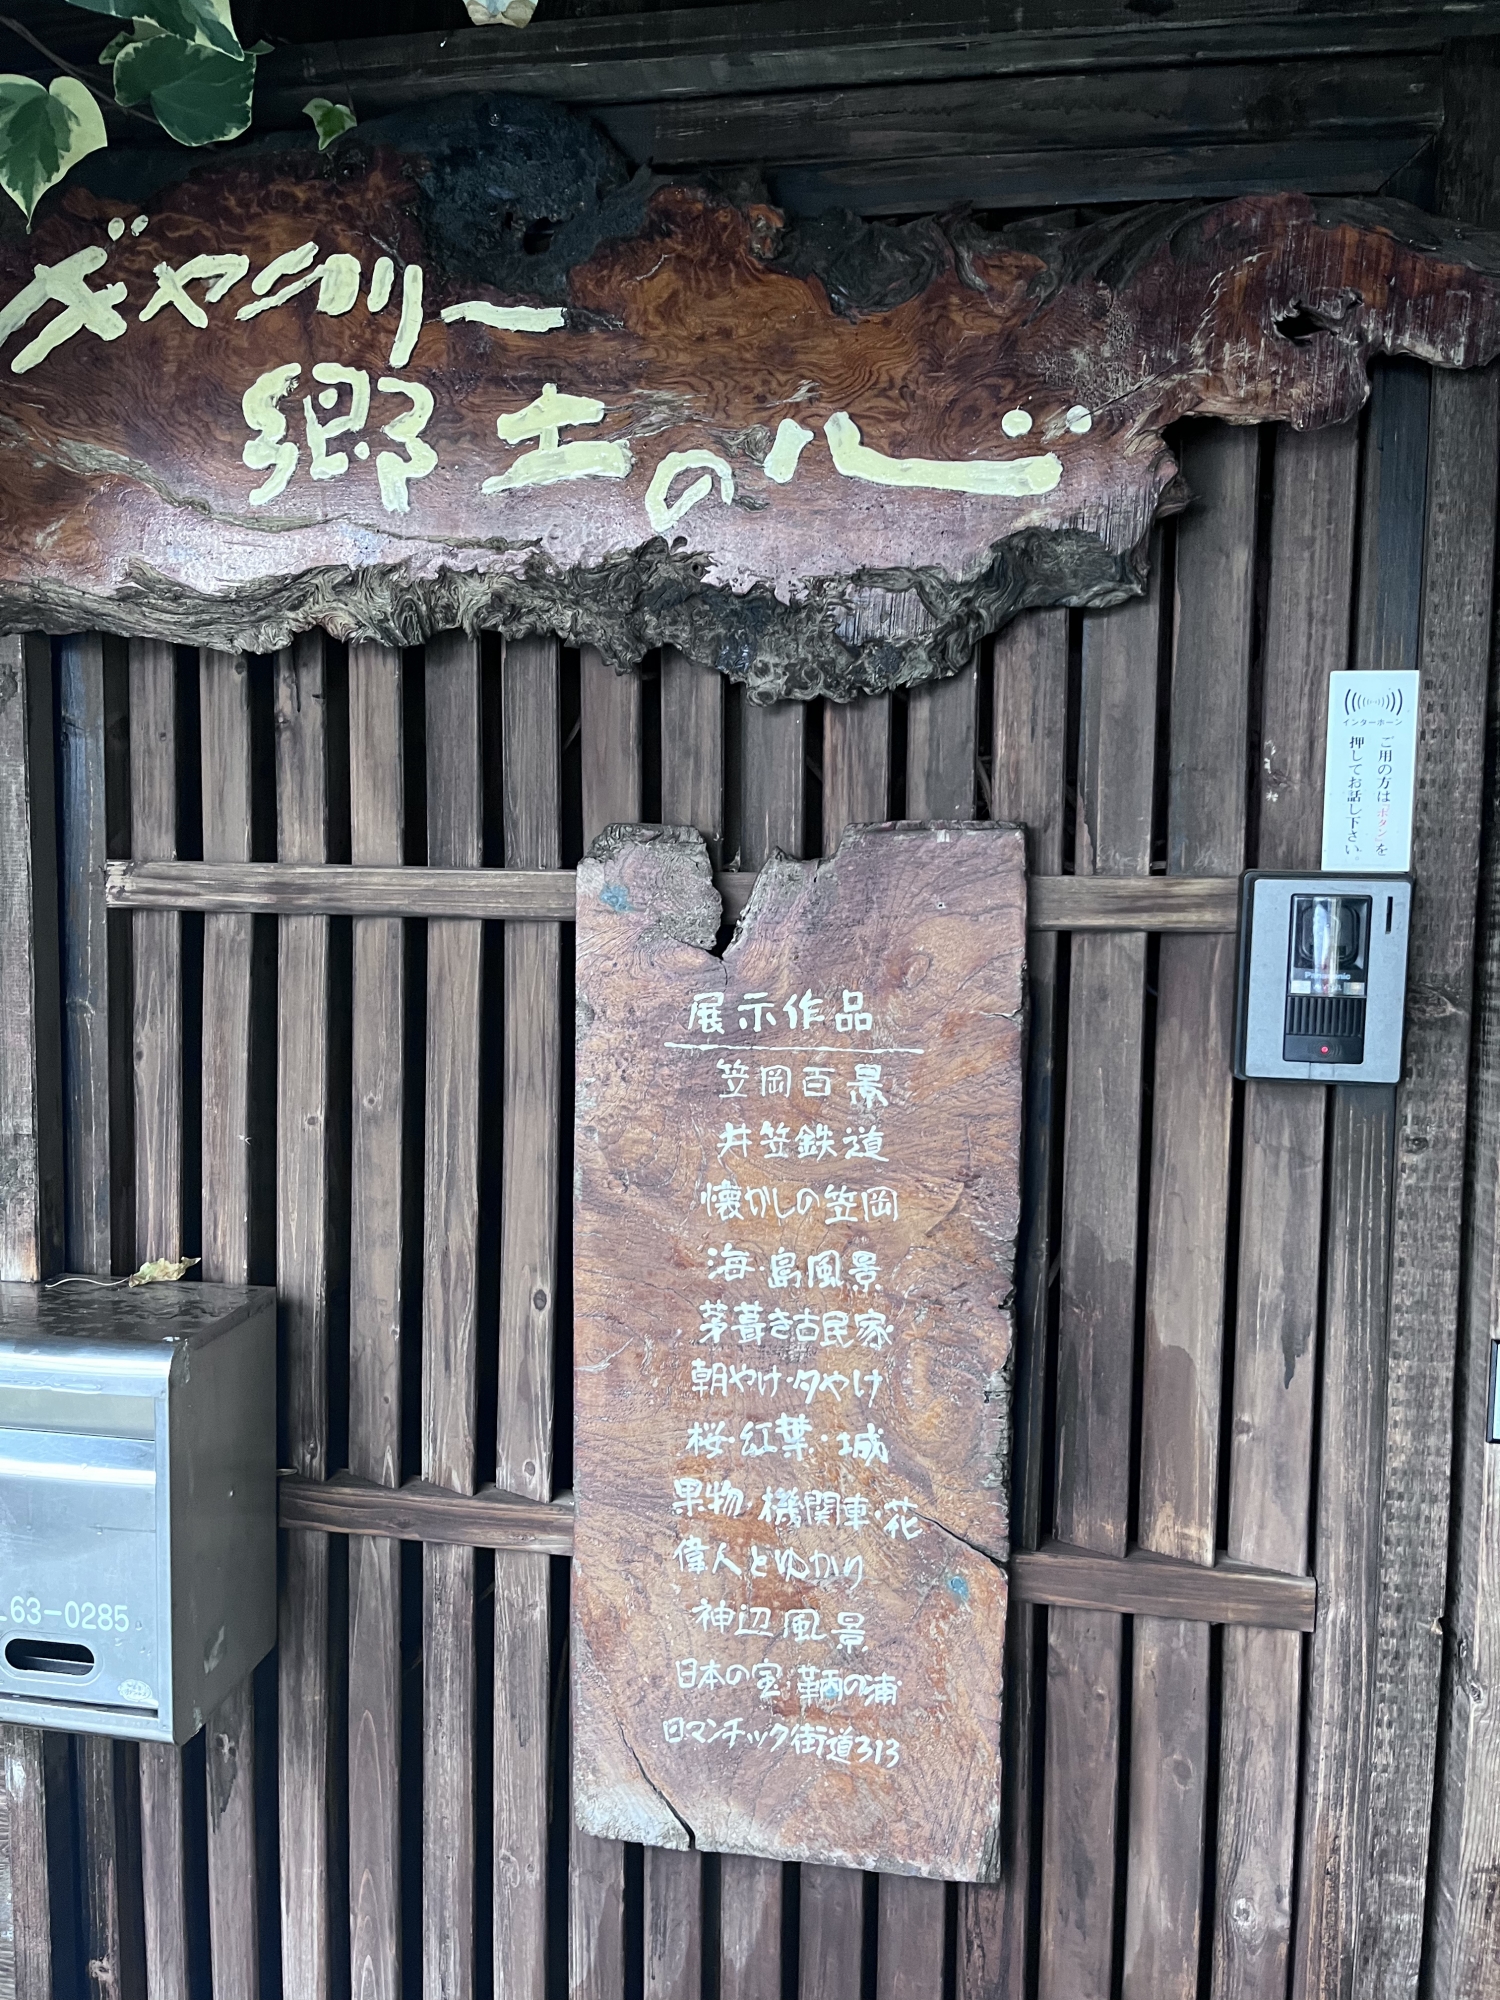 ギャラリー
郷土の心
インターホーン
ご用の方は「ボタン」を
押してお話し下さい。
Panasonic
展示作品
笠岡百景
井笠鉄道
懐かしの笠岡
海・島風景
茅葺き古民家
朝やけ・夕やけ
桜・紅葉・城
果物・機関車・花
偉人とゆかり
神辺風景
日本の宝・鞆の浦
ロマンチック街道313
L63-0285